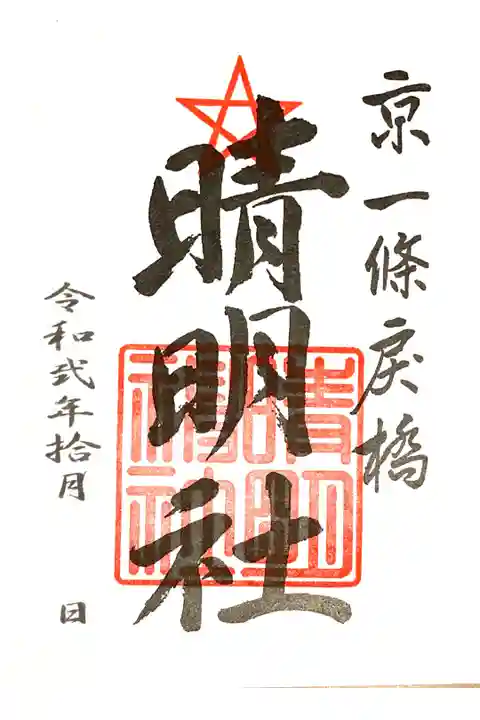 京一條戻橋
晴明社
晴明
神社
令和弐年拾月 日